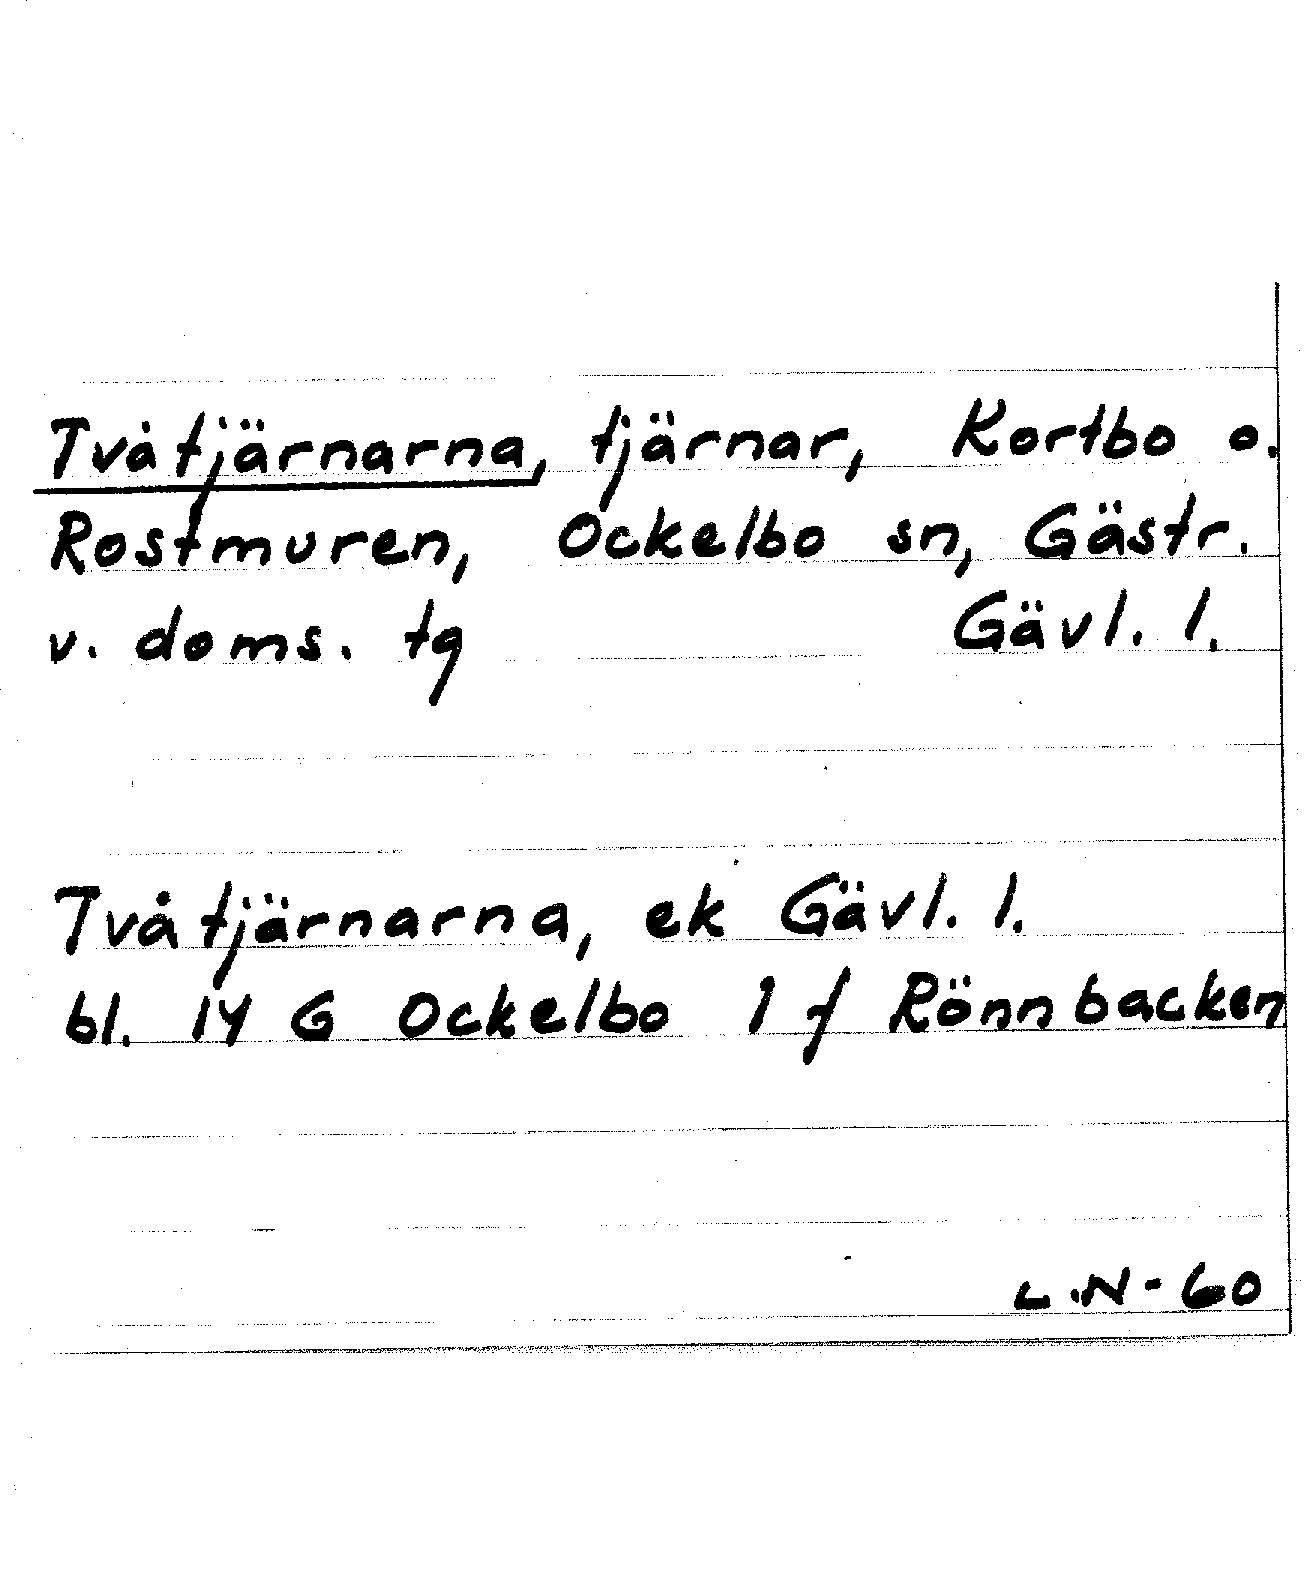 Tvåtjärnarna, tjärnar, Kortbo o.
Rostmuren, Ockelbo sn, Gästr.
v. doms. tg Gävl. l.
Tvåtjärnarna, ek Gävl. l.
bl. 14 G Ockelbo 1 f Rönnbacken
L.N-60